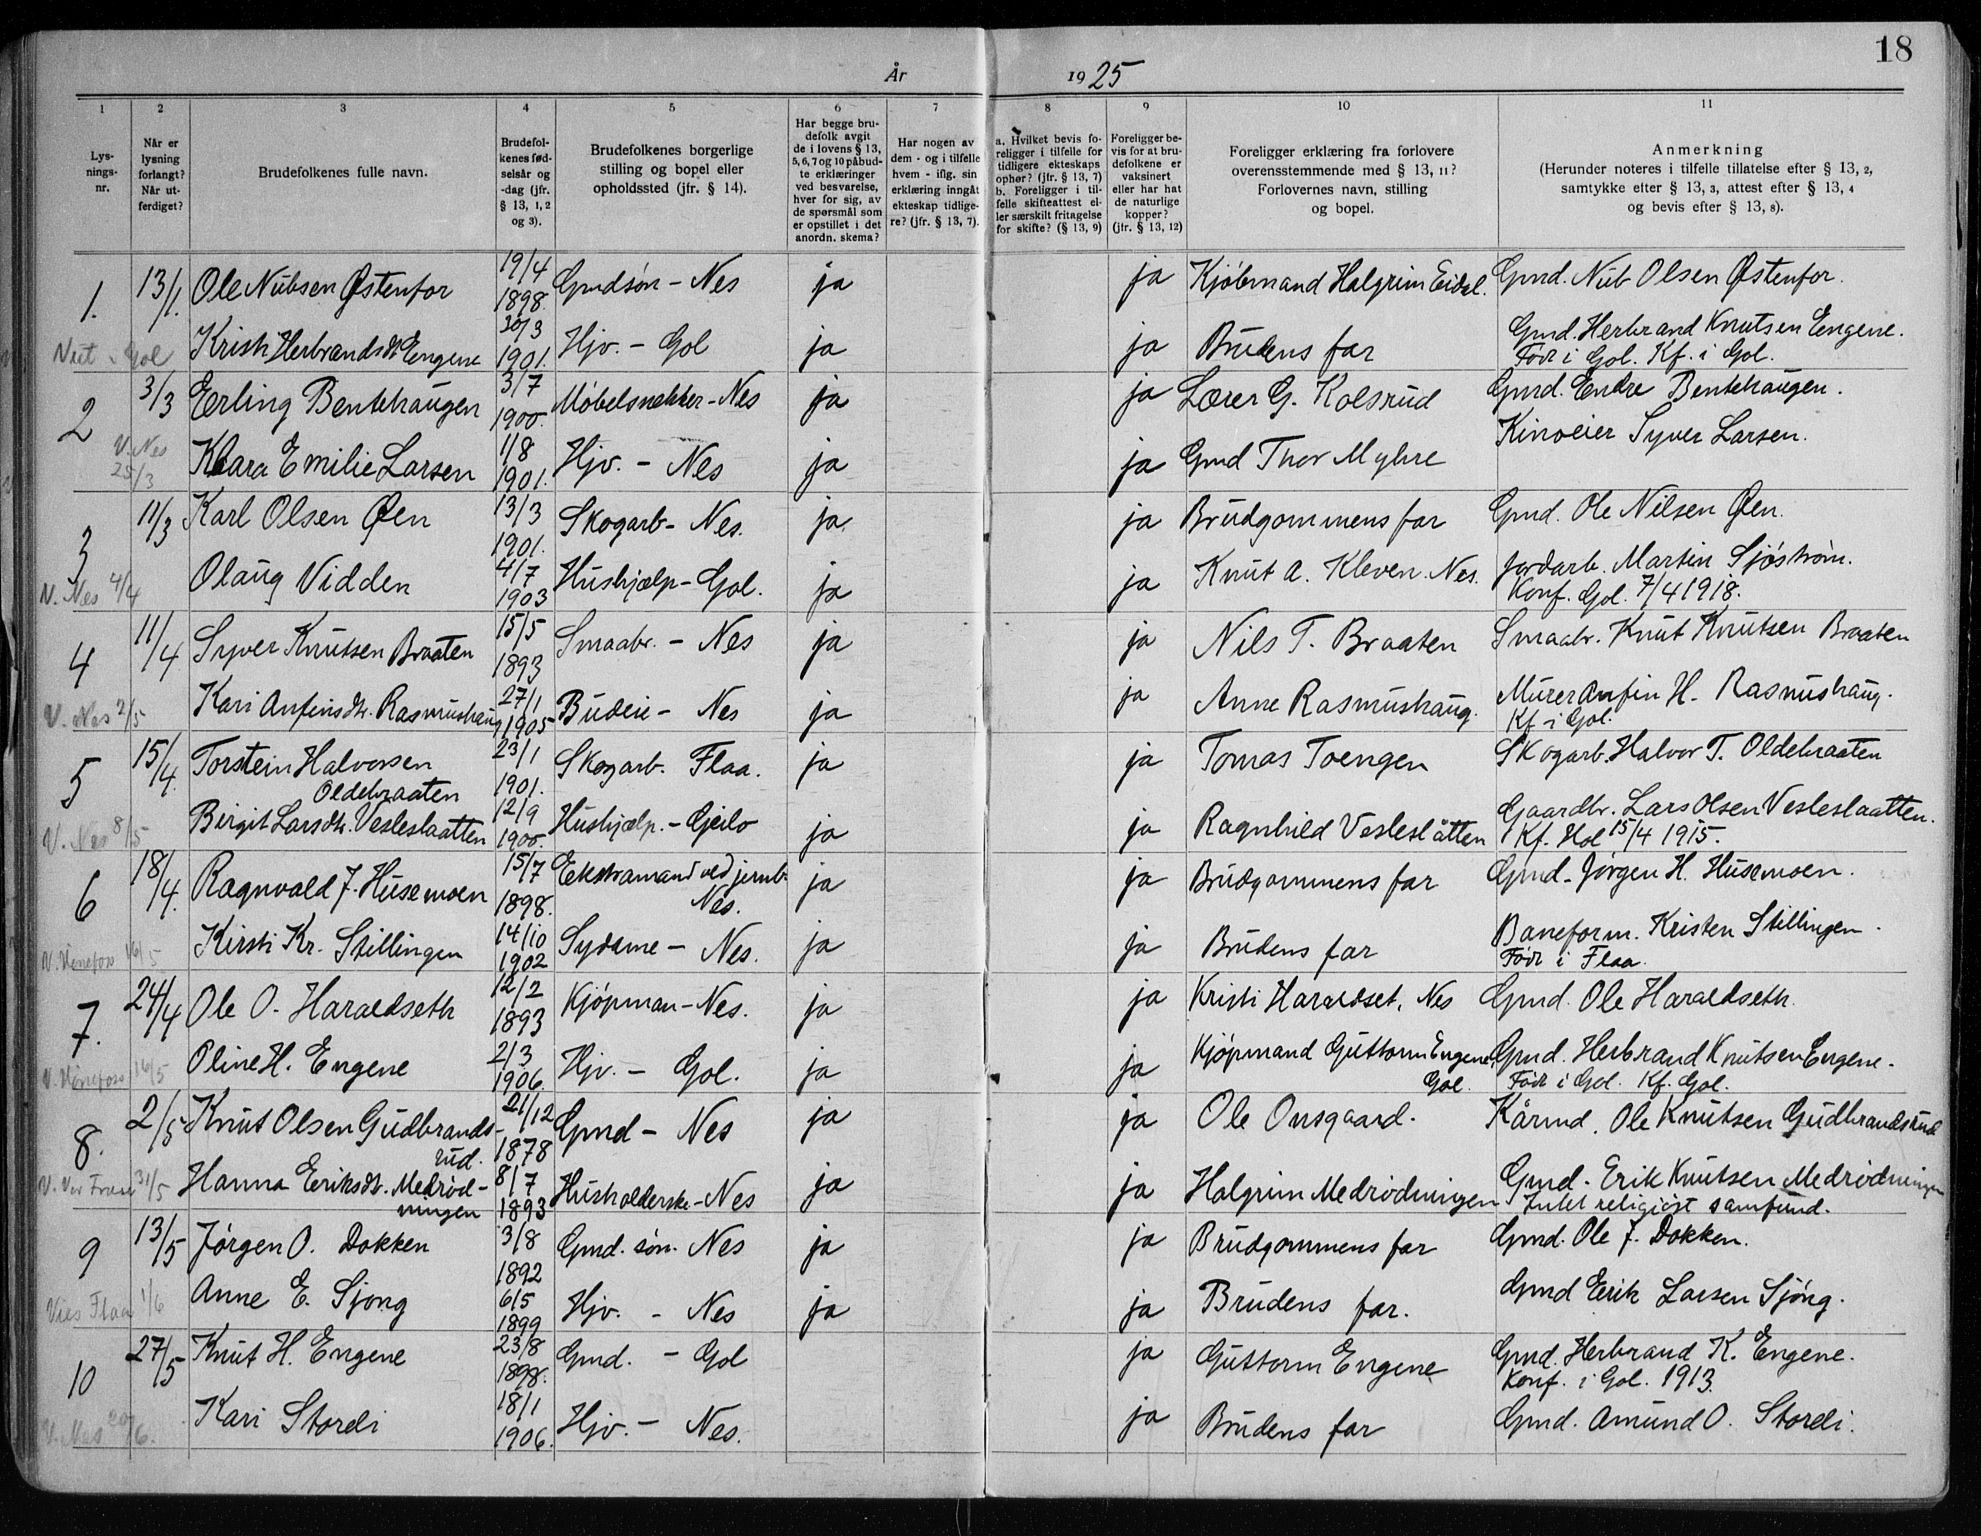 18
År 1925
1 2 3 4 5 6 7 8 9 10 11
Lys-
nings-
nr.
Når er
lysning
forlangt?
Når ut-
ferdiget?
Brudefolkenes fulle navn.
Brudefol-
kenes fød-
selsår og
-dag (jfr.
§ 13, 1, 2
og 3).
Brudefolkenes borgerlige
stilling og bopel eller
opholdssted (jfr. § 14).
Har begge bru-
defolk avgit
de i lovens § 13,
5, 6, 7 og 10 påbud-
te erklæringer
ved besvarelse,
hver for sig, av
de spørsmål som
er opstillet i det
anordn. skema?
Har nogen av
dem - og i tilfelle
hvem - iflg. sin
erklæring inngått
ekteskap tidlige-
re? (jfr. § 13, 7).
a. Hvilket bevis fo-
religger i tilfelle for
tidligere ekteskaps
ophør? (jfr. § 13, 7)
b. Foreligger i til-
felle skifteattest el-
ler særskilt fritagelse
for skifte? (§ 13, 9)
Foreligger be-
vis for at bru-
defolkene er
vaksinert
eller har hat
de naturlige
kopper?
(jfr. § 13, 12)
Foreligger erklæring fra forlovere
overensstemmende med § 13, 11?
Forlovernes navn, stilling
og bopel.
Anmerkning
(Herunder noteres i tilfelle tillatelse efter § 13, 2,
samtykke efter § 13, 3, attest efter § 13, 4
og bevis efter § 13, 8).
1. 13/1. Ole Nubsen Østenfor 19/4 1898. Gmdsøn - Nes ja ja Kjøbmand Halgrim Eidal. Gmd. Nub Olsen Østenfor.
Gol Kristi Herbrandsdt Engene 30/3 1901. Hjv. - Gol ja ja Brudens far Gmd. Herbrand Knutsen Engene.
Født i Gol. Kf. i Gol.
2 3/3 Erling Bentehaugen 3/7 1900. Møbelsnekker - Nes ja ja Lærer G. Kolsrud Gmd. Endre Bentehaugen.
V. Nes 25/3 Klara Emilie Larsen 1/8 1901. Hjv. - Nes ja ja Gmd Thor Myhre Kinoeier Syver Larsen.
3 11/3 Karl Olsen Øen 13/3 1901. Skogarb - Nes. ja ja Brudgommens far Gmd. Ole Nilsen Øen.
V. Nes 4/4 Olaug Vidden 4/7 1903 Hushjælp - Gol. ja ja Knut A. Kleven. Nes. Jordarb. Martin Sjöström.
Konf. Gol. 7/4 1918.
4 11/4 Syver Knutsen Braaten 15/5 1893 Smaabr. - Nes ja ja Nils T. Braaten Smaabr. Knut Knutsen Braaten
V. Nes 2/5 Kari Anfinsdtr. Rasmushaug 27/1 1905 Budeie - Nes ja ja Anne Rasmushaug. Murer Anfin H. Rasmushaug.
Kf i Gol.
5 15/4. Torstein Halvorsen 23/1 1901. Skogarb. Flaa. ja ja Tomas Toengen Skogarb. Halvor T. Oldebraaten
Oldebraaten
V. Nes 8/5 Birgit Larsdtr. Vesleslaatten 12/9 1900. Hushjælp. - Geilo ja ja Ragnhild Vesleslåtten Gaardbr. Lars Olsen Vesleslaatten.
Kf. Hol 15/4 1915.
6 18/4. Ragnvald J. Husemoen 15/7 1898. Ekstramand ved jernb. ja ja Brudgommens far Gmd. Jørgen H. Husemoen.
Nes.
V. Hönefoss 16/5 Kirsti Kr. Stillingen 14/10 1902 Sydame - Nes. ja ja Brudens far Baneform. Kristen Stillingen.
Født i Flaa.
7. 24/4 Ole O. Haraldseth 12/2 1893 Kjøpman - Nes. ja ja Kristi Haraldset, Nes Gmd. Ole Haraldseth.
V. Hönefoss 16/5 Oline H. Engene 2/3 1906. Hjv. - Gol. ja ja Kjøpmand Guttorm Engene, Gmd. Herbrand Knutsen Engene.
Gol. Født i Gol. Kf. Gol.
8. 2/5 Knut Olsen Gudbrands- 21/12 1878 Gmd - Nes ja ja Ole Onsgaard. Kårmd. Ole Knutsen Gudbrandsrud
rud.
31/5 Hanna Eriksdt. Medrød- 8/7 1893 Husholderske - Nes ja ja Halgrim Medrødningen Gmd. Erik Knutsen Medrødningen
ningen Intet religiøst samfund.
9 13/5 Jørgen O. Dokken 3/8 1892 Gmd. søn. Nes ja ja Brudgommens far Gmd. Ole J. Dokken.
Vies Flaa 1/6 Anne E. Sjong 6/5 1899 Hjv. - Nes ja ja Brudens far. Gmd Erik Larsen Sjøng.
10 27/5 Knut H. Engene 23/8 1898. Gmd. - Gol ja Guttorm Engene Gmd. Herbrand K. Engene.
Konf. i Gol. 1913.
V. Nes 20/6. Kari Stordi 18/1 1906. Hjv. - Nes. ja Brudens far Gmd. Amund O. Stordi.